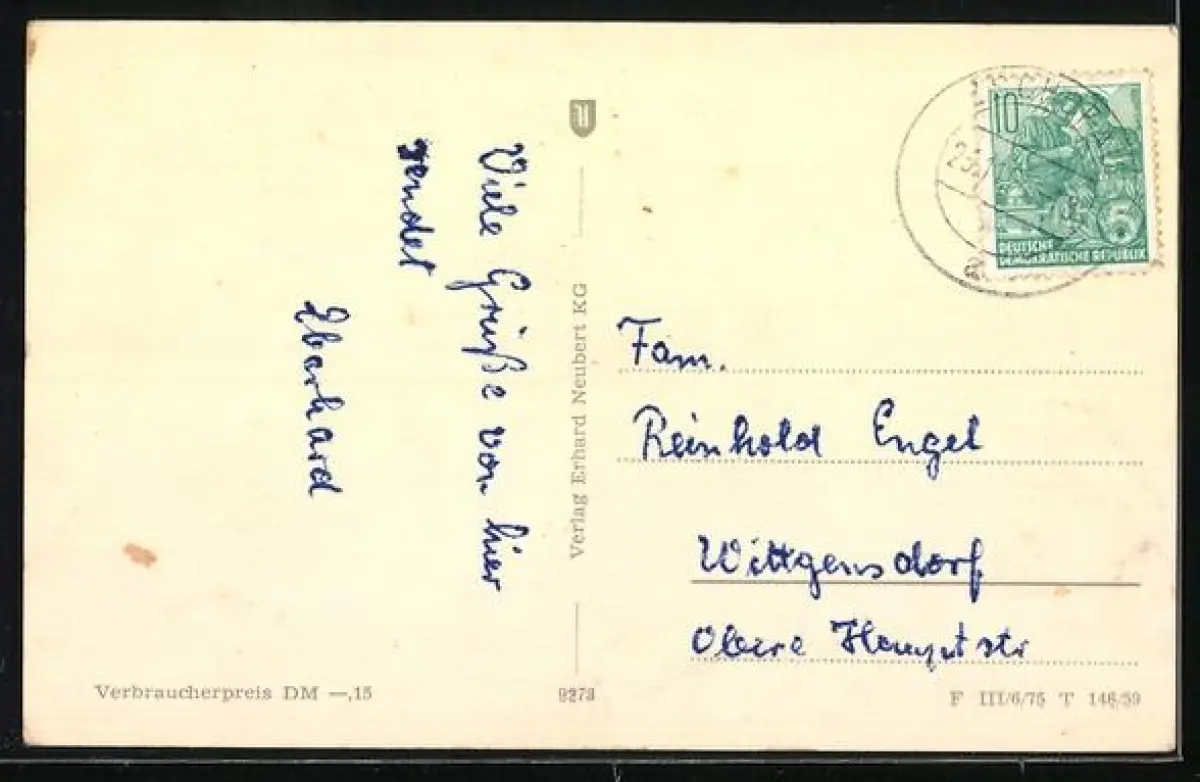 Viele Grüße von hier
sendet
Eberhard
Verlag Erhard Neubert KG
10
5
DEUTSCHE
DEMOKRATISCHE REPUBLIK
Fam.
Reinhold Engel
Wittgensdorf
Obere Hauptstr
Verbraucherpreis DM —,15
9273
F III/6/75 T 146/59